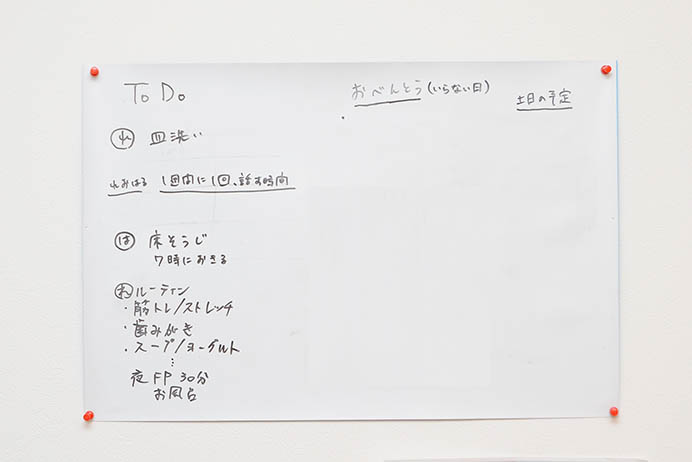 To Do
れ 皿洗い
れみはる 1週間に1回、話す時間
は 床そうじ
7時におきる
れ ルーティン
・筋トレ/ストレッチ
・歯みがき
・スープ/ヨーグルト
⋮
夜 FP 30分
お風呂
おべんとう(いらない日)
・
土日の予定